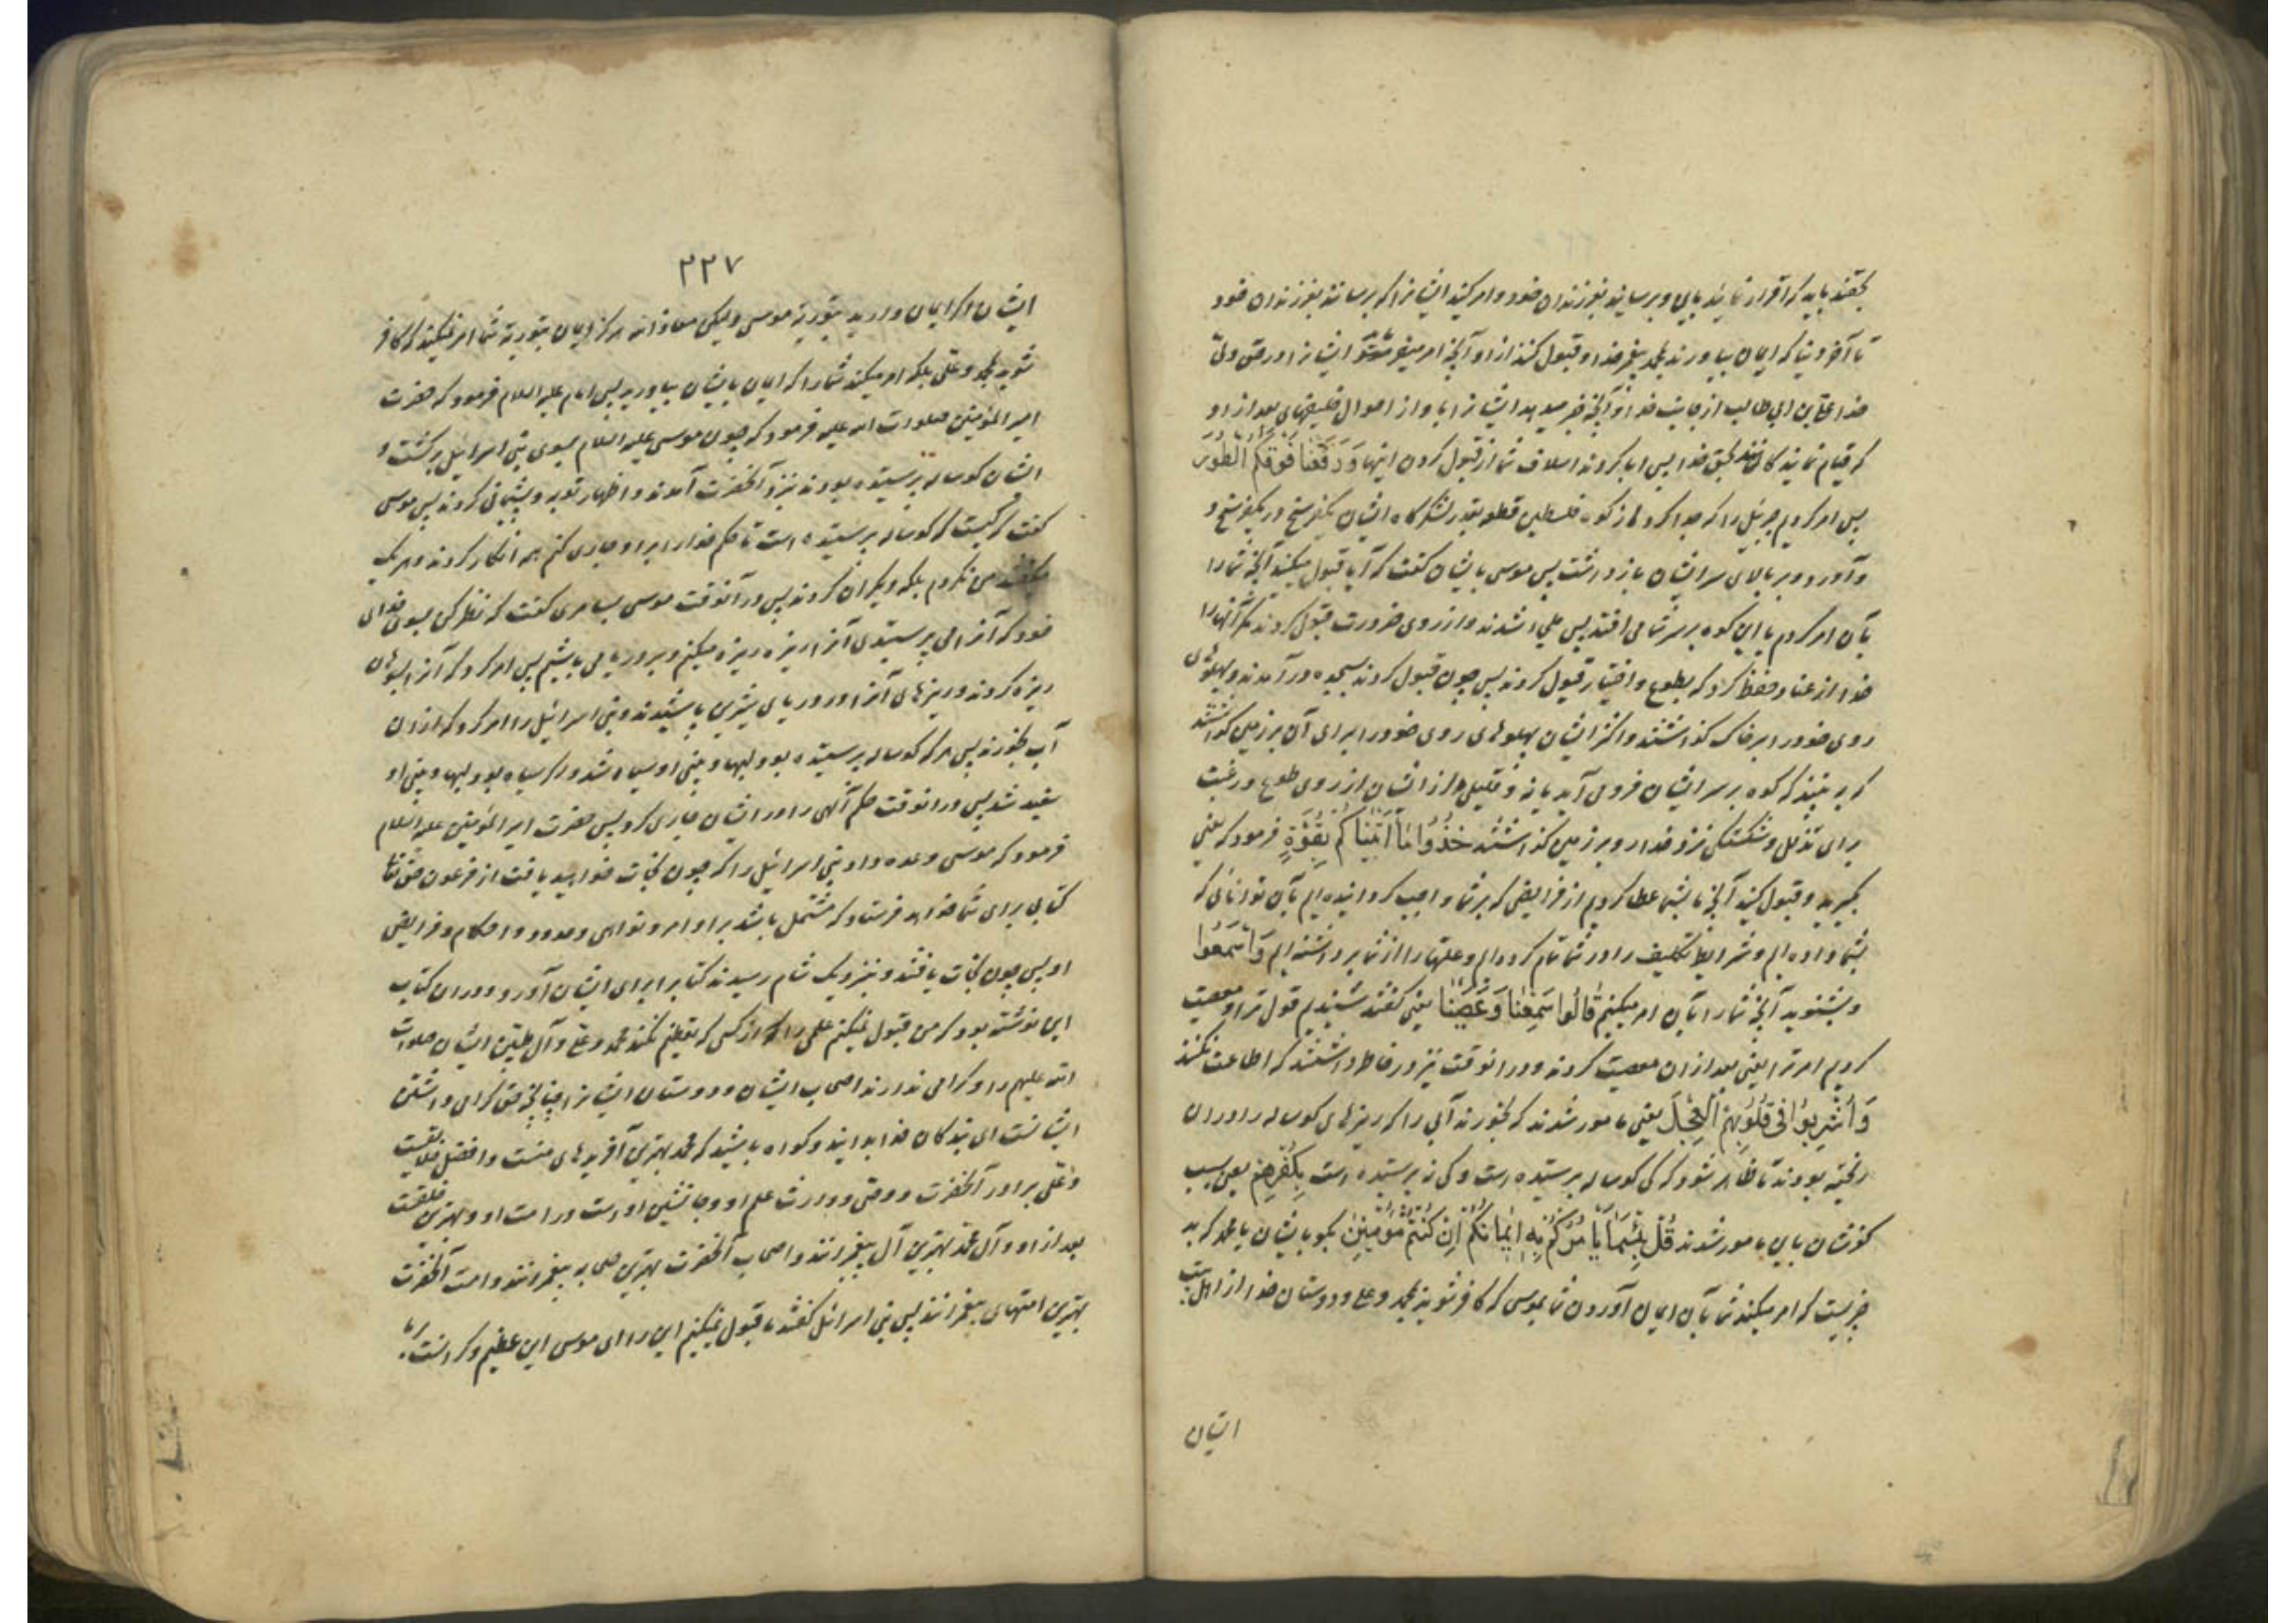 بحقند باید که اقرار نمایند باین و برسانند بفرزندان خود و امر کنند ایشانرا که برسانند بفرزندان خود
تا آخر دنیا که ایمان بیاورند بمحمد پیغمبر خدا و قبول کنند از او آنچه امر میفرماید ایشانرا در حق ولی
خدا علی بن ابی طالب از جانب خدا و آنچه خبر میدهد ایشانرا با و از احوال خلیفهای بعد از او
که قیام نمایندکانند بحق خدا پس ابا کردند اسلاف شما از قبول کردن اینها وَرَفَعنا فَوقَکُمُ الطُورَ
پس امر کردیم جبرئیل را که جدا کرد از کوه فلسطین قطعه بقدر لشکرکاه ایشان یکفرسخ در یکفرسخ و
و آورد و بر بالای سر ایشان باز داشت پس موسی بایشان کفت که آیا قبول میکنید آنچه شما را
بآن امر کردم یا این کوه بر سر شما می افتد پس ملجاء شدند و از روی ضرورت قبول کردند مکر آنها را
خدا از عناد حفظ کرد که بطوع و اختیار قبول کردند پس چون قبول کردند بسجده در آمدند و پهلوهای
روی خود را بر خاک کذاشتند و اکثر ایشان پهلوهای روی خود را برای آن بر زمین کذاشتند
که ببینند که کوه بر سر ایشان فرو می آید یا نه و قلیلی از ایشان از روی طوع و رغبت
برای تذلل و شکستکی نزد خدا رو بر زمین کذاشتند خُذُوا ما آتَیناکُم بِقُوَّةٍ فرمود که یعنی
بکیرید و قبول کنید آنچه بشما عطا کردیم از فرایضی که بر شما واجب کردانیده ایم بآن توانائی که
بشما داده ایم و شرایط تکلیف را در شما تمام کرده ایم و علتها را از شما برداشته ایم وَاسمَعُوا
و بشنوید آنچه شما را بآن امر میکنیم قالُوا سَمِعنا وَعَصَینا یعنی کفتند شنیدیم قول ترا و معصیت
کردیم امر ترا یعنی بعد از ان معصیت کردند و در انوقت نیز در خاطر داشتند که اطاعت نکنند
وَاُشرِبُوا فی قُلُوبِهِمُ العِجلَ یعنی مامور شدند که بخورند آبی را که ریزهای کوساله را در ان
ریخته بودند تا ظاهر شود که کی کوساله پرستیده است و کی نپرستیده است بِکُفرِهِم یعنی بسبب
کفرشان باین مامور شدند قُل بِئسَما یَامُرُکُم بِهِ اِیمانُکُم اِن کُنتُم مُؤمِنینَ بکو بایشان یا محمد که بد
چیزیست که امر میکند شما بآن ایمان آوردن شما بموسی که کافر شوید بمحمد و علی و دوستان خدا از اهل بیت
ایشان
۲۲۷
ایشان اکر ایمان دارید بتوریة موسی ولیکن معاذ الله هرکز ایمان بتوریة شما امر نمیکند که کافر
شوید بمحمد و علی بلکه امر میکند شما را که ایمان بایشان بیاورید پس امام علیه السلام فرمود که حضرت
امیر المؤمنین صلوات الله علیه فرمود که چون موسی علیه السلام بسوی بنی اسرائیل برکشت و
ایشان کوساله پرستیده بودند نزد آنحضرت آمدند و اظهار توبه و پشیمانی کردند پس موسی
کفت که کیست که کوساله پرستیده است تا حکم خدا را بر او جاری کنم همه انکار کردند و هر یک
میکفتند من نکردم بلکه دیکران کردند پس در آنوقت موسی بسامری کفت که نظر کن بسوی خدای
خود که آنرا می پرستیدی آنرا ریزه ریزه میکنم و بدریا می پاشیم پس امر کرد که آنرا بسوهان
ریزه کردند و ریزهای آنرا در دریای شیرین پاشیدند و بنی اسرائیل را امر کرد که از ان
آب بخورند پس هر که کوساله پرستیده بود لبها و بینی او سیاه شد و اکر سیاه بود لبها و بینی او
سفید شد پس در انوقت حکم آلهی را در ایشان جاری کرد پس حضرت امیر المؤمنین علیه السلام
فرمود که موسی وعده داد بنی اسرائیل را که چون نجات خواهید یافت از فرعون حق تعالی
کتابی برای شما خواهد فرستاد که مشتمل باشد بر اوامر و نواهی و حدود و احکام و فرایض
او پس چون نجات یافتند و نزدیک شام رسیدند کتاب را برای ایشان آورد و در ان کتاب
این نوشته بود که من قبول نمیکنم عملی را از کسی که تعظیم نکند محمد و علی و آل طیبین ایشان صلوات
الله علیهم را و کرامی ندارند اصحاب ایشان و دوستان ایشانرا چنانچه حق کرامی داشتن
ایشانست ای بندکان خدا بدانید و کواه باشید که محمد بهترین آفریدهای منست و افضل خلایقست
و علی برادر آنحضرت و وصی و وارث علم او و جانشین اوست در امت او و بهترین خلقست
بعد از او و آل محمد بهترین آل پیغمبرانند و اصحاب آنحضرت بهترین صحابه پیغمبرانند و امت آنحضرت
بهترین امتهای پیغمبرانند پس بنی اسرائیل کفتند ما قبول نمیکنیم این را ای موسی این عظیم و کرانست بر ما